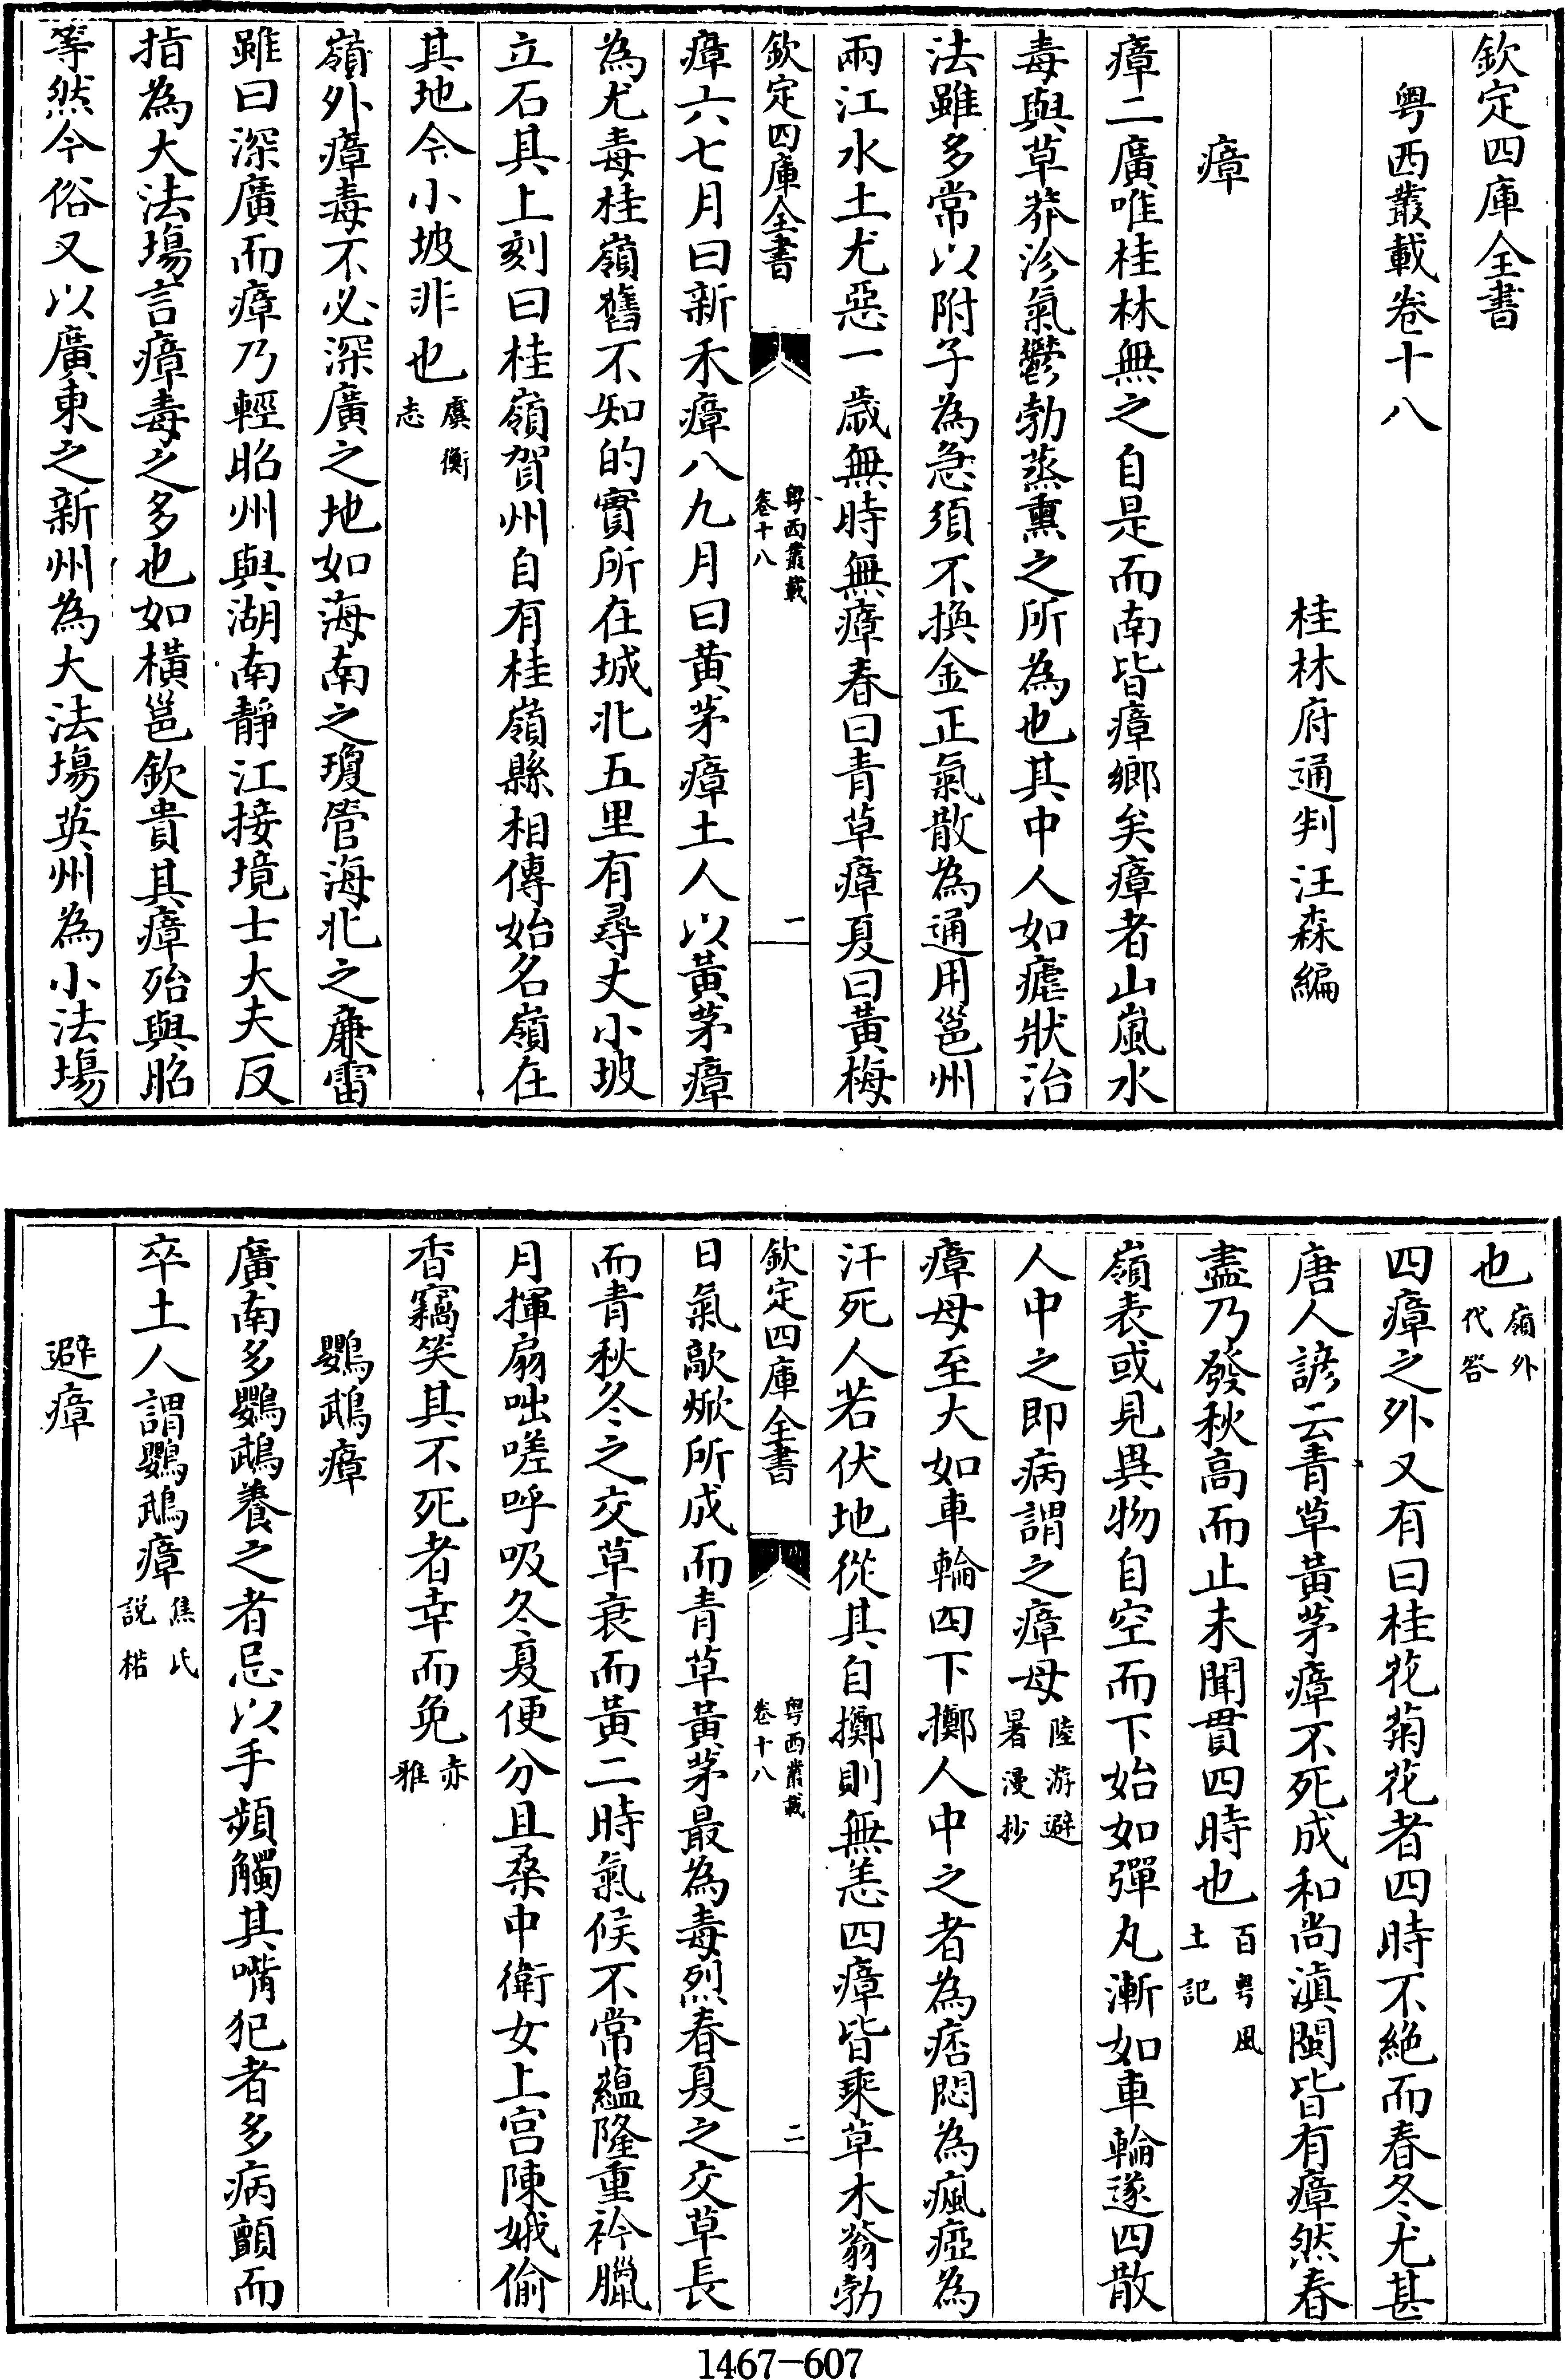 欽定四庫全書
粤西叢載卷十八
桂林府通判汪森編
瘴
瘴二廣唯桂林無之自是而南皆瘴鄉矣瘴者山嵐水
毒與草莽沴氣鬱勃蒸熏之所為也其中人如瘧狀治
法雖多常以附子為急須不換金正氣散為通用邕州
兩江水土尤惡一歲無時無瘴春曰青草瘴夏曰黃梅
欽定四庫全書
粤西叢載
卷十八
一
瘴六七月曰新禾瘴八九月曰黃茅瘴土人以黃茅瘴
為尤毒桂嶺舊不知的實所在城北五里有尋丈小坡
立石其上刻曰桂嶺賀州自有桂嶺縣相傳始名嶺在
其地今小坡非也虞衡
志
嶺外瘴毒不必深廣之地如海南之瓊管海北之廉雷
雖曰深廣而瘴乃輕昭州與湖南靜江接境士大夫反
指為大法塲言瘴毒之多也如橫邕欽貴其瘴殆與昭
等然今俗又以廣東之新州為大法塲英州為小法塲
也嶺外
代答
四瘴之外又有曰桂花菊花者四時不絕而春冬尤甚
唐人諺云青草黃茅瘴不死成和尚滇閩皆有瘴然春
盡乃發秋高而止未聞貫四時也百粤風
土記
嶺表或見異物自空而下始如彈丸漸如車輪遂四散
人中之即病謂之瘴母陸游避
暑漫抄
瘴母至大如車輪四下擲人中之者為痞悶為瘋瘂為
汗死人若伏地從其自擲則無恙四瘴皆乘草木蓊勃
欽定四庫全書
粤西叢載
卷十八
二
日氣歊焮所成而青草黃茅最為毒烈春夏之交草長
而青秋冬之交草衰而黃二時氣候不常蘊隆重衿臘
月揮扇咄嗟呼吸冬夏便分且桑中衛女上宮陳娥偷
香竊笑其不死者幸而免赤
雅
鸚鵡瘴
廣南多鸚鵡養之者忌以手頻觸其嘴犯者多病顫而
卒土人謂鸚鵡瘴焦氏
說楛
避瘴
1467-607